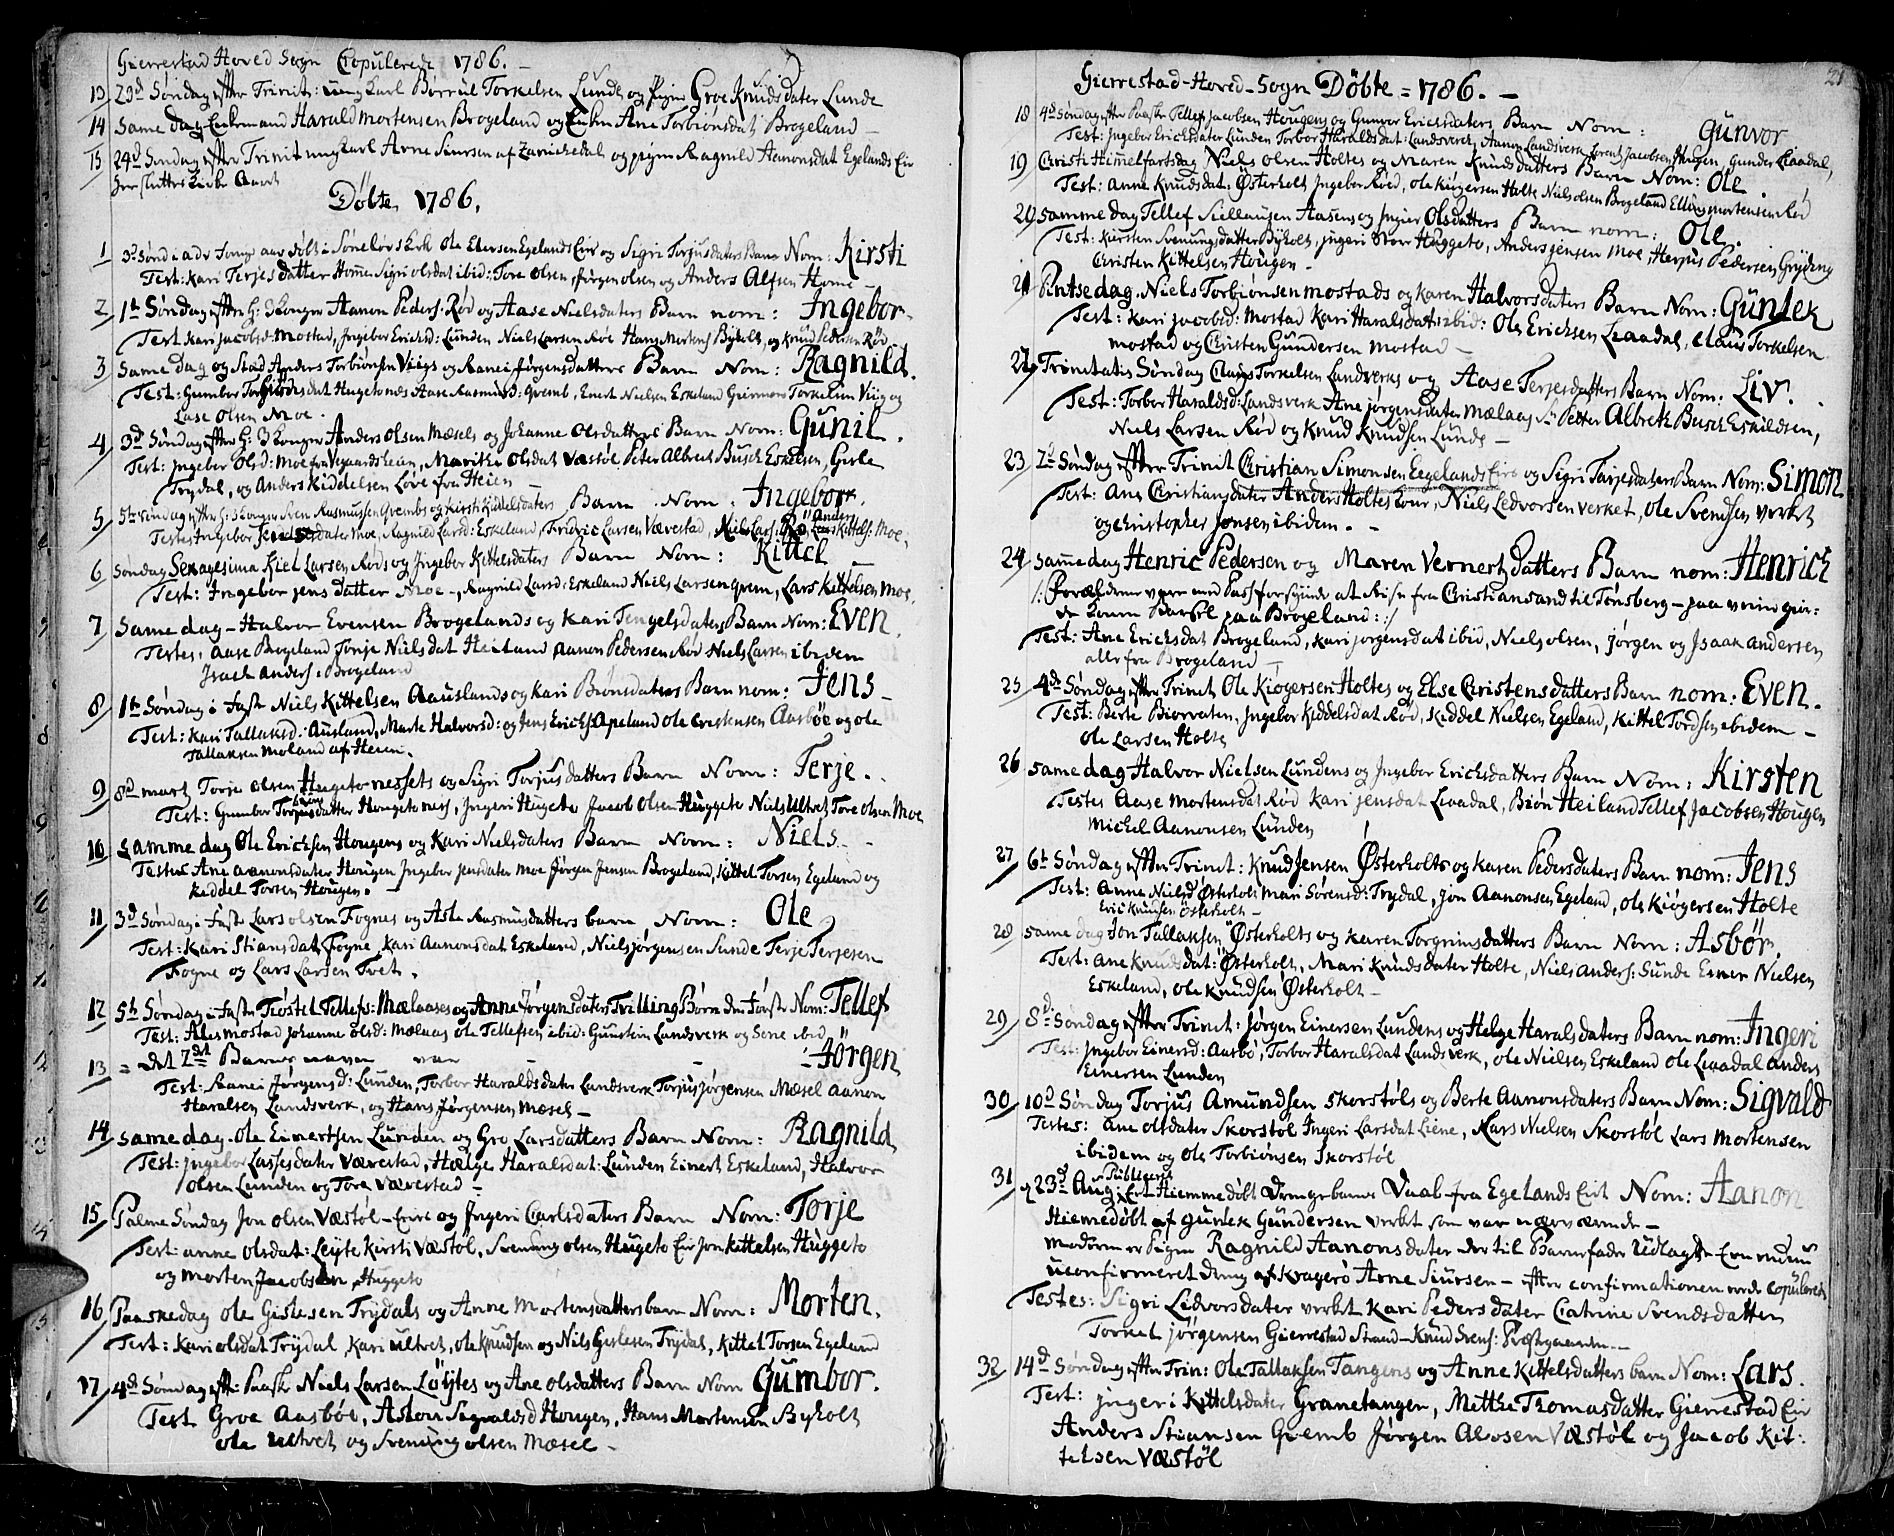 Gierrestad Hoved Sogn Copulerede 1786. –
13 23d Søndag efter Trinit: ung karl Børruld Torkelsen Lunde og Pigen Groe Knudsdater Lunde
14 Same dag Enkemand Harald Mortensen Brogeland og Enken Ane Torbiønsdat Brogeland –
15 24d Søndag efter Trinit ungkarl Arne Siursen af og pigen Ragnild Aanonsdat Egelands Eir
her slutter Kirke Aaret
Døbte 1786.
1 3d Sønd i adv døbt i Søneløvs kirk Ole Edersen Egelands Eir og Sigri Torjusdaters Barn Nom: Kirsti
Test: Kari Terjesdatter Homme Sigri olsdat ibid: Tore olsen, Jørgen olsen og Anders Alfsen Home –
2 1te Søndag efter H: 3 Konger Aanon Peders: Rød og Aase Nielsdaters Barn nom: Ingebor –
Test kari Jacobsd Mostad, Ingebor Ericksd: Lunden Niels Larsen Røe Hans Mortens Byholt, og Knud Pedersen Rød –
3 Same dag og Stæd Anders Torbiønsen Viigs og Ranei Jørgensdatters Barn Nom: Ragnild.
Test: Gumbor Torbiønsdat Hugetonæs Aase Rasmusd: Gremb, Enert Nielsen Eskeland Guttorm Torkelsen Viig og
Lase olsen Moe.
4 3d Søndag efter H: 3 Konger Anders olsen Mæsels og Johanne Olsdatters Barn Nom: Gunil.
Test: Ingebor Olsd: Moe fra Vegaardsheien, Marithe Olsdat Væstøl Peter Albrect Busch Eskelsen, Gisle
Trydal, og Anders Kiddelsen Løve fra Heien
5 5te Søndag efter H: 3 Konger Rasmussen Grembs og Kirsti Kiddelsdaters Barn Nom: Ingebor.
Testes Ingebor Jensdater Moe, Ragnild Larsd: Eskeland, Fridric Larsen Værestad, Niels Lars: Rø Anders Lars Kittels: Moe.
6 Søndag Sexagesima Kiel Larsen Røds og Ingebor Kittelsdaters Barn Nom: Kittel –
Test: Ingebor Jens datter Moe –, Ragnild Larsd: Eskeland Niels Larsen grem, Lars Kittelsen Moe.
7 Same dag – Halvor Evensen Brogelands og Kari Tengelsdaters Barn Nom: Even.
Testes: Aase Brogeland Tonje Nielsdat Heiland Aanon Pedersen Rød Niels Larsen ibidem
Isach Anders: Brogeland
8 1te Søndag i Faste Niels Kittelsen Aauslands og Kari Biønsdaters Barn nom: Jens –
Test: Kari Tallaksd: Ausland, Marte Halvorsd: og Jens Ericks: Apeland Ole Cristensen Aasbøe og ole
Tallaksen Moland af Heien.
9 8d Marts Torje olsen Hugetonessets og Sigri Torjusdatters Barn Nom: Terje.
Test: Gumbor Torbiønsdatter Hougetonæss, Ingeri Hugeto Jacob Olsen Huggeto Niels Ultvet Tore olsen Moe
10 samme dag Ole Erichsen Hougens og Kari Nielsdaters Barn Nom: Niels –
Testes Ane Aanonsdater Hougen Ingebor Jensdater Moe Jørgen Jensen Brogeland, Kittel Torsen Egeland og
Kiddel Torsen Hougen. –
11 3d Søndag i Faste Lars olsen Fognes og Asle Rasmusdatters barn Nom: Ole
Test: Kari Stiansdat Fogne, Kari Aanonsdat Eskeland, Niels Jørgensen Sunde Terje Terjesen
Fogne og Lars Larsen Tvet.
12 5te Søndag i Faste Tiøstel Tellefs: Mælaases og Anne Jørgensdaters Trilling Børn den Første Nom: Tellef
Test: Ales Mostad Johanne olsd: Mælaas Ole Tellefsen ibid: Gunstein Landsverk og Sone ibid
13 = det 2det Barnes navn var – – : Jørgen
Test: Ranei Jørgensd: Lunden, Torbor Haraldsdater Landsverk Torjus Jørgensen Mæsel Aanon
Haralsen Landsverk, og Hans Jørgensen Mæsel –
14 same dag Ole Einertsen Lunden og Gro Larsdatters Barn Nom: Ragnild
Test: Ingebor Lassesdater Værestad, Hælge Haralsdat: Lunden Einert Eskeland, Halvor
olsen Lunden og Tore Værestad –
15 Palme Søndag Jon olsen Væstøl – Eire og Ingeri Carlsdaters Barn Nom: Torje
Test: anne olsdat: Leite Kirsti Væstøl, Svenung olsen Hugeto Eir Jon Kittelsen Huggeto
og Morten Jacobsen Huggeto
16 Paaskedag Ole Gislesen Trydals og Anne Mortensdatters barn Nom: Morten.
Test: Kari olsdat Trydal, Kari ultvet, ole Knudsen og Niels Gislesen Trydal, Kittel Torsen Egeland
17 4de Søndag efter Paask Niels Larsen Løytes og Ane olsdatters Barn Nom Gumbor.
Test Groe Aasbøe, Aslou Segvaldsd Hougen, Hans Mortensen Byholt
ole Ultvet og Svenung olsen Mæsel –
Gierrestad-Hoved-Sogn Døbte = 1786. –
21
18 4de Søndag efter Paaske Tellef Jacobsen Hougens og Gunvor Ericksdaters Barn Nom: Gunvor
Test: Ingebor Ericksdater Lunden Torbor Haraldsdat: Landsverk, Aanon Landsverk Jacobsen Hougen, Gunder Liaadal,
19 Christi Himmelfartsdag Niels olsen Holtes og Maren Knudsdatters Barn Nom: Ole.
Test: Anne Knudsdat: Østerholt Ingebor Røed, Ole Kiøgersen Holte Niels olsen Brogeland Elling Mortensen Rød
20 samme dag Tellef Siellausen Aasens og Ingier Olsdatters Barn nom: Ole.
Test: Kiersten Svenungsdatter Byholt, Ingeri Stor Huggeto, Anders Jensen Moe, Herjus Pedersen Gryding
Christen Kittelsen Hougen –
21 Pintsedag. Niels Torbiønsen Mostads og Karen Halvorsdaters Barn Nom: Guntek
Test: Kari Jacobsd: Mostad Kari Haralsdatr ibid: Ole Erichsen Liaadal, Claus Torkelsen
Mostad og Christen Gundersen Mostad –
22 Trinitatis Søndag Claus Torkelsen Landverks og Aase Terjesdatters Barn Nom: Liv.
Test: Torbor Haraldsd: Landsverk Ane Jørgensdater Mælaas Sr Petter Albrekt Busch Eskildsen,
Niels Larsen Rød og Knud Knudsen Lunde –
23 2d Søndag efter Trinit Christian Simonsen Egelands Eire og Sigri Tarjesdaters Barn Nom: Simon
Test: Ane Christiansdater Anders Holtes kone, Niels Ledvorsen verket, Ole Svendsen verket
og Christopher Jonsen ibidem. –
24 Same dag Henric Pedersen og Maren Vernertz Datters Barn nom: Henrich
/: Forældrene vare med Pass forsynede at Reise fra Christiansand til Tønsberg – paa
de komen Barsel paa Brogeland :/
Test: Ane Ericksdat Brogeland, Kari Jørgensdat ibid, Niels olsen, Jørgen og Isaak Andersen
alle fra Brogeland –
25 4de Søndag efter Trinit Ole Kiøgersen Holtes og Else Christensdatters Barn nom: Even.
Test: Berte Biorvaten, Ingebor Kiddelsdat Rød, Kiddel Nielsen Egeland, Kittel Tordsen ibidem –
Ole Larsen Holte
26 same dag Halvor Nielsen Lundens og Ingebor Ericksdatters Barn Nom: Kirsten
Testes Aase Mortensdat Rød Kari Jensdat Liaadal, Biøn Heiland Tellef Jacobsen Hougen
Michel Aanonsen Lunden
27 6te Søndag efter Trinit: Knud Jensen Østerholts og Karen Pedersdaters Barn nom: Jens
Test: Anne Nielsd Østerholt Mari Sørensd: Trydal, Jon Aanonsen Egeland, Ole Kiøgersen Holte
Eric Knudsen Østerholt –
28 same dag Jon Tallaksen Østerholts og Karen Torgrimsdatters Barn Nom: Asbør.
Test: Ane Knudsdat: Østerholt, Mari Knudsdater Holte, Niels Anders: Sunde Esner Nielsen
Eskeland, Ole Knudsen Østerholt –
29 8d: Søndag efter Trinit: Jørgen Einersen Lundens og Helge Haralsdaters Barn nom: Ingeri
Test: Ingebor Einersd: Aasbø, Torbor Haralsdat Landsverk, Ole Nielsen Eskeland Ole Liaadal Anders
Einersen Lunden
30 10d Søndag Torjus Amundsen Skorstøls og Berte Aanonsdaters Barn Nom: Sigvald
Testes: Ane olsdater Skorstøl Ingeri Larsdat Liene, Lars Nielsen Skorstøl Lars Mortensen
ibidem og Ole Torbiønsen Skorstøl
31 23d Aug: Publiceret Et Hiemmedøbt Drengebarn Vaal – fra Egelands Eir Nom: Aanon
Hiemedøbt af Guntek Gundersen verket som var nærværende –
Moderen er Pigen Ragnild Aanonsdater der til Barnefader Udlagde Een endnu
uconfirmeret dreng af Kragerø Arne Siursen – efter confirmationen vorde copulerede
Testes: Sigri Ledvorsdater verket Kari Pedersdater Catrine Svendsdatter
Torkel Jørgensen Gierrestad Strand – Knud Svens: Præstegaarden –
32 14d Søndag efter Trin: Ole Tallaksen Tangens og Anne Kittelsdatters barn Nom: Lars.
Test: Ingeri Kittelsdater Granetangen, Metthe Thomasdatter Gierrestad Eir
Anders Stiansen Gremb Jørgen Alvosen Væstøl og Jacob Kit:
telsen Væstøl